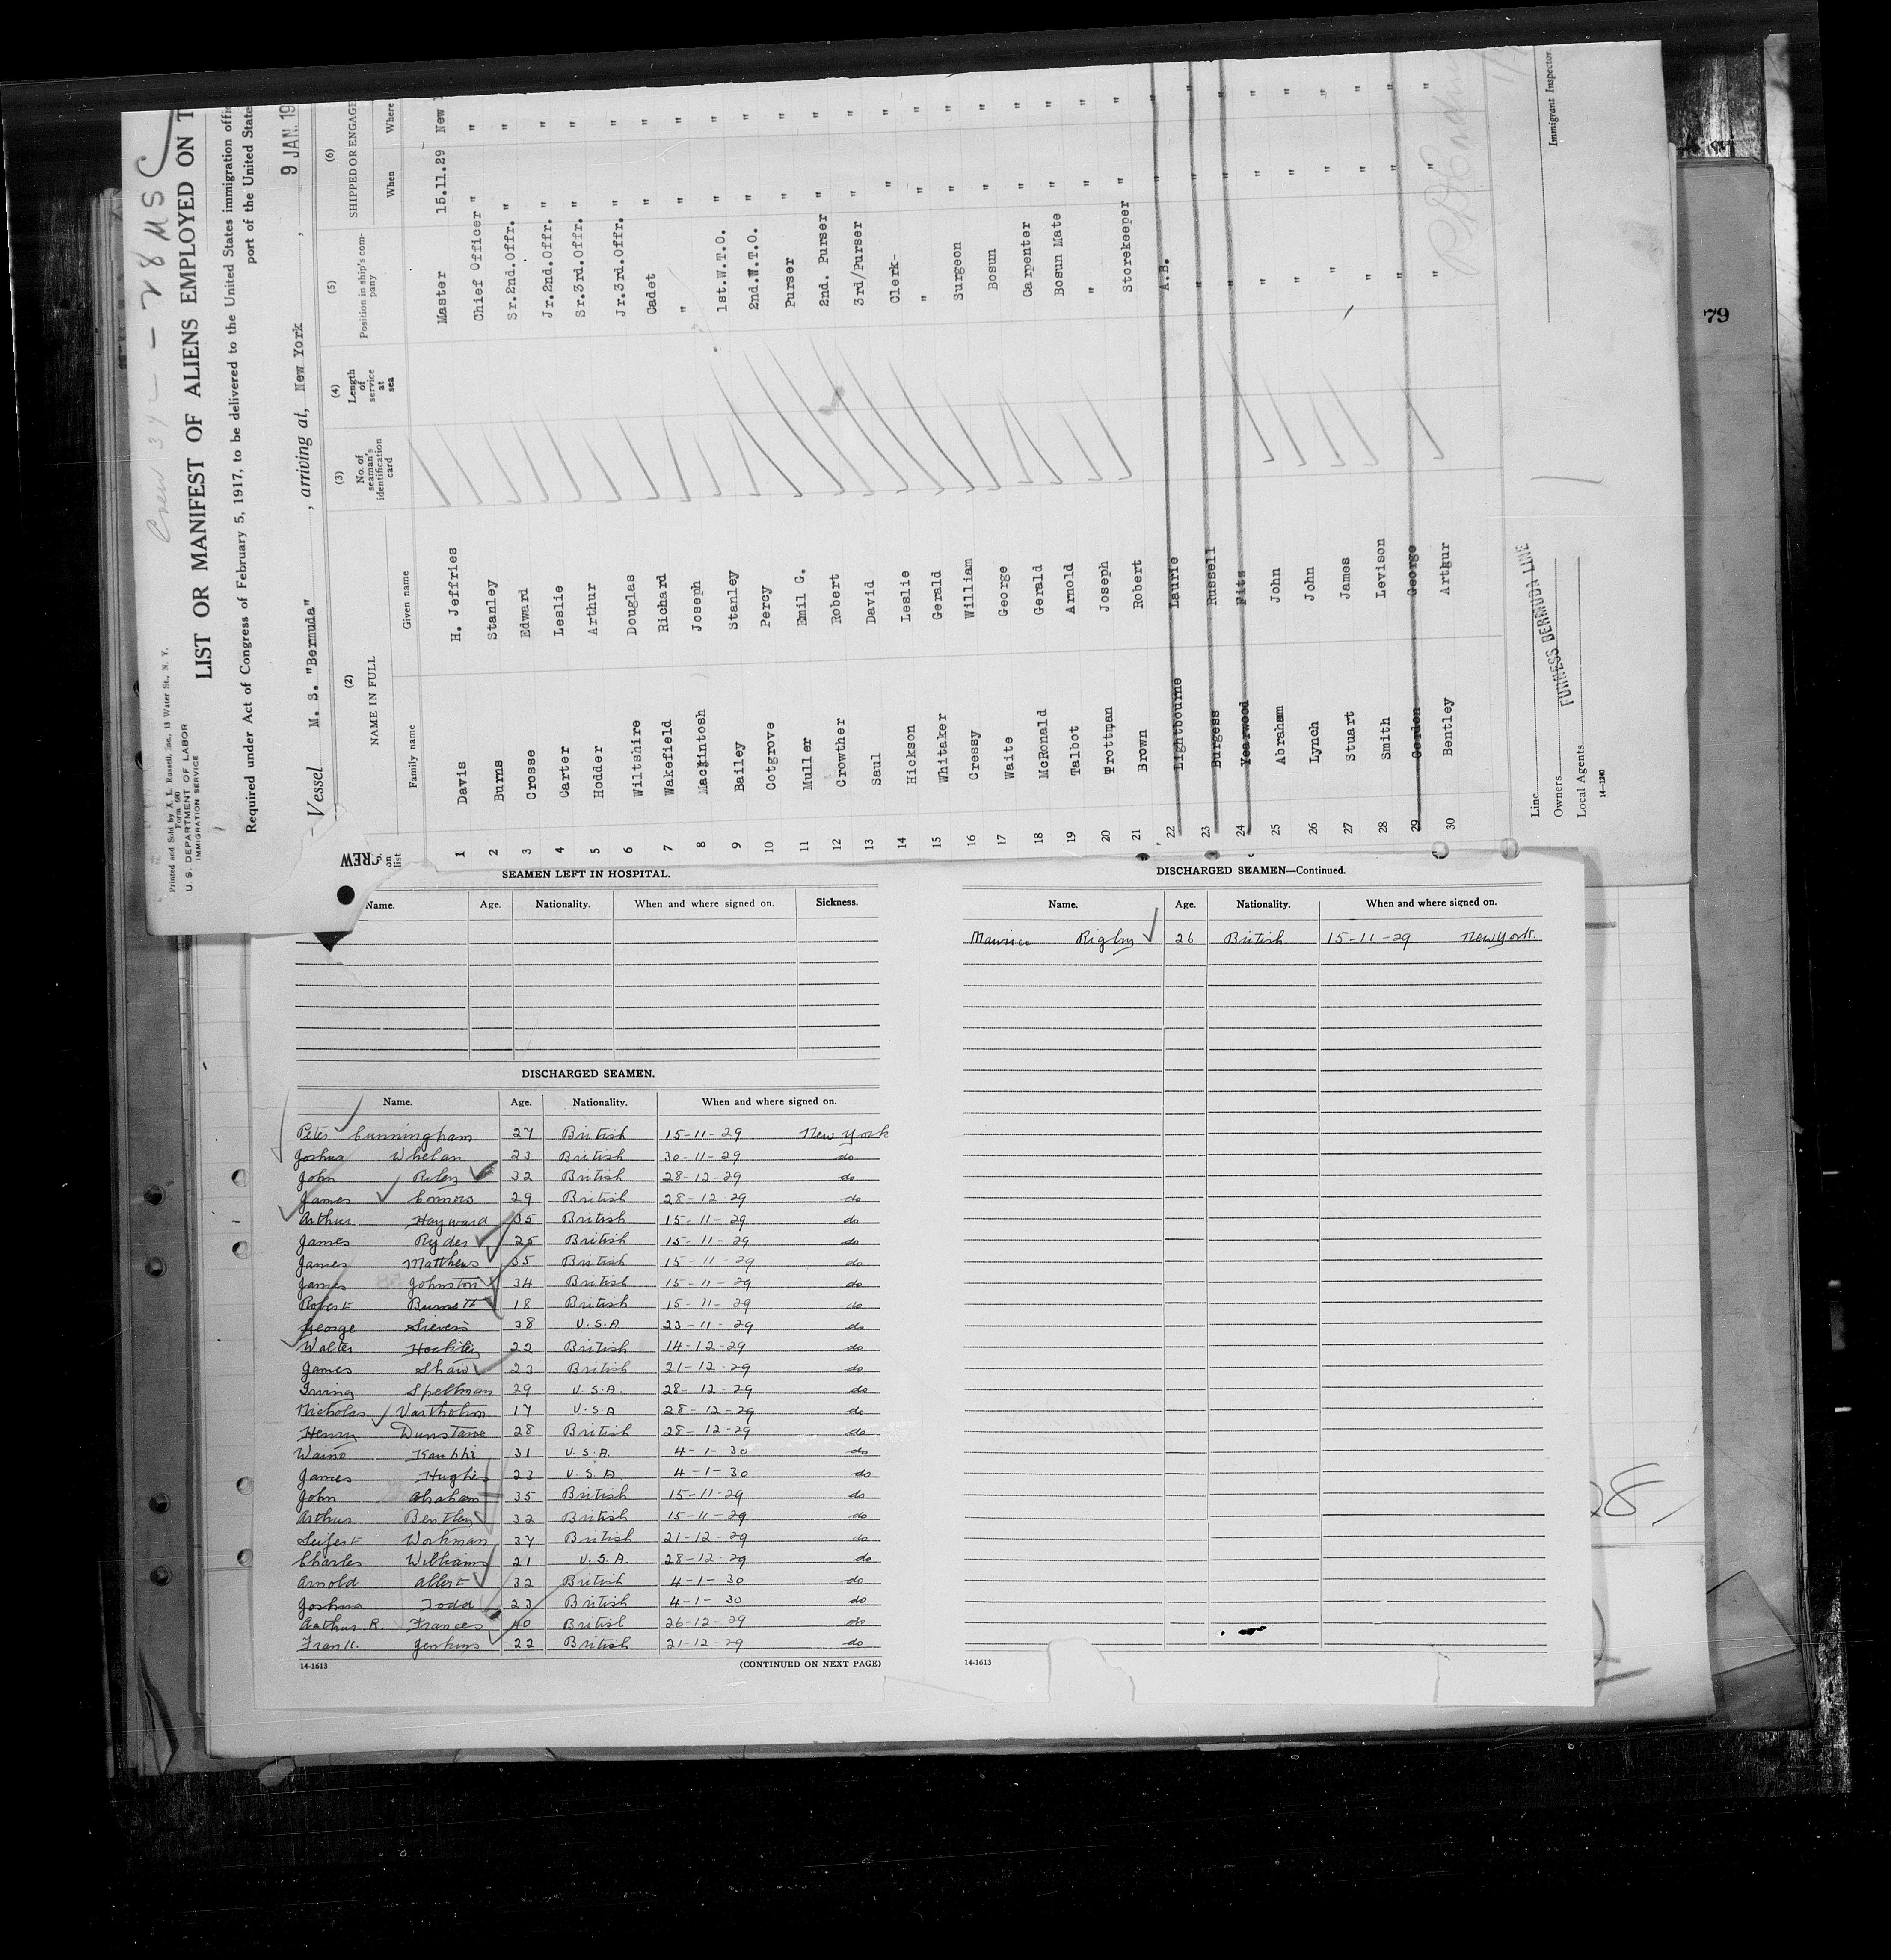 Crew 34 - 28 MSC
Printed and Sold by A. L. Russell, Inc., 13 Water St., N. Y.
Form 680
U. S. DEPARTMENT OF LABOR
IMMIGRATION SERVICE
LIST OR MANIFEST OF ALIENS EMPLOYED ON T
Required under Act of Congress of February 5, 1917, to be delivered to the United States immigration offi
port of the United State
Vessel M. S. "Bermuda", arriving at, New York, 9 JAN. 19
(2) (3) (4) (5) (6)
NAME IN FULL No. of seaman's identification card Length of service at sea Position in ship's company SHIPPED OR ENGAGE
on list Family name Given name When Where
1 Davis H. Jeffries Master 15.11.29 New
2 Burns Stanley Chief Officer " "
3 Crosse Edward Sr.2nd.Offr. " "
4 Carter Leslie Jr.2nd.Offr. " "
5 Hodder Arthur Sr.3rd.Offr. " "
6 Wiltshire Douglas Jr.3rd.Offr. " "
7 Wakefield Richard Cadet " "
8 Mackintosh Joseph " " "
9 Bailey Stanley 1st.W.T.O. " "
10 Cotgrove Percy 2nd.W.T.O. " "
11 Muller Emil G. Purser " "
12 Crowther Robert 2nd. Purser " "
13 Saul David 3rd/Purser " "
14 Hickson Leslie Clerk- " "
15 Whitaker Gerald " " "
16 Cressy William Surgeon " "
17 Waite George Bosun " "
18 McRonald Gerald Carpenter " "
19 Talbot Arnold Bosun Mate " "
20 Trottman Joseph " " "
21 Brown Robert Storekeeper " "
22 Lightbourne Laurie A.B. " "
23 Burgess Russell " " "
24 Yearwood Fitz " " "
25 Abraham John " " "
26 Lynch John " " "
27 Stuart James " " "
28 Smith Levison " " "
29 Gordon George " " "
30 Bentley Arthur " " "
Line
Owners FURNESS BERMUDA LINE
Local Agents
14-1240
Immigrant Inspector.
79
CREW
SEAMEN LEFT IN HOSPITAL.
Name. Age. Nationality. When and where signed on. Sickness.
DISCHARGED SEAMEN.
Name. Age. Nationality. When and where signed on.
Peter Cunningham 27 British 15-11-29 New York
Joshua Whelan 23 British 30-11-29 do
John Riley 32 British 28-12-29 do
James Connors 29 British 28-12-29 do
Arthur Hayward 35 British 15-11-29 do
James Ryder 25 British 15-11-29 do
James Matthews 35 British 15-11-29 do
James Johnston 34 British 15-11-29 do
Robert Burnett 18 British 15-11-29 do
George Sievers 38 U.S.A. 23-11-29 do
Walter Hockley 22 British 14-12-29 do
James Shaw 23 British 21-12-29 do
Irving Spellman 29 U.S.A. 28-12-29 do
Nicholas 17 U.S.A 28-12-29 do
Henry 28 British 28-12-29 do
Waino 31 U.S.A. 4-1-30 do
James Hughes 23 U.S.A. 4-1-30 do
John Abraham 35 British 15-11-29 do
Arthur Bentley 32 British 15-11-29 do
Seifert Workman 37 British 21-12-29 do
Charles Williams 21 U.S.A. 28-12-29 do
Arnold Albert 32 British 4-1-30 do
Joshua Todd 23 British 4-1-30 do
Arthur R. Frances 40 British 26-12-29 do
Frank Jenkins 22 British 21-12-29 do
14-1613 (CONTINUED ON NEXT PAGE)
DISCHARGED SEAMEN—Continued.
Name. Age. Nationality. When and where signed on.
Maurice Rigby 26 British 15-11-29 New York.
14-1613
28